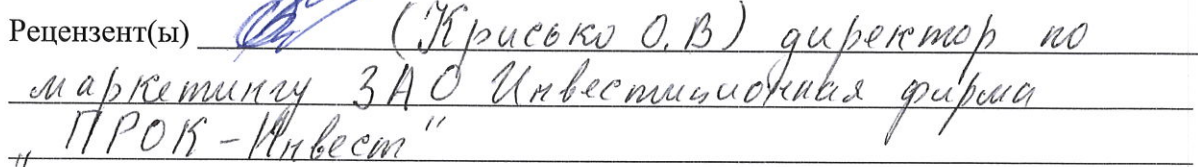 Рецензент(ы) (Крисько О.В) директор по
маркетингу ЗАО Инвестиционная фирма
„ПРОК-Инвест"